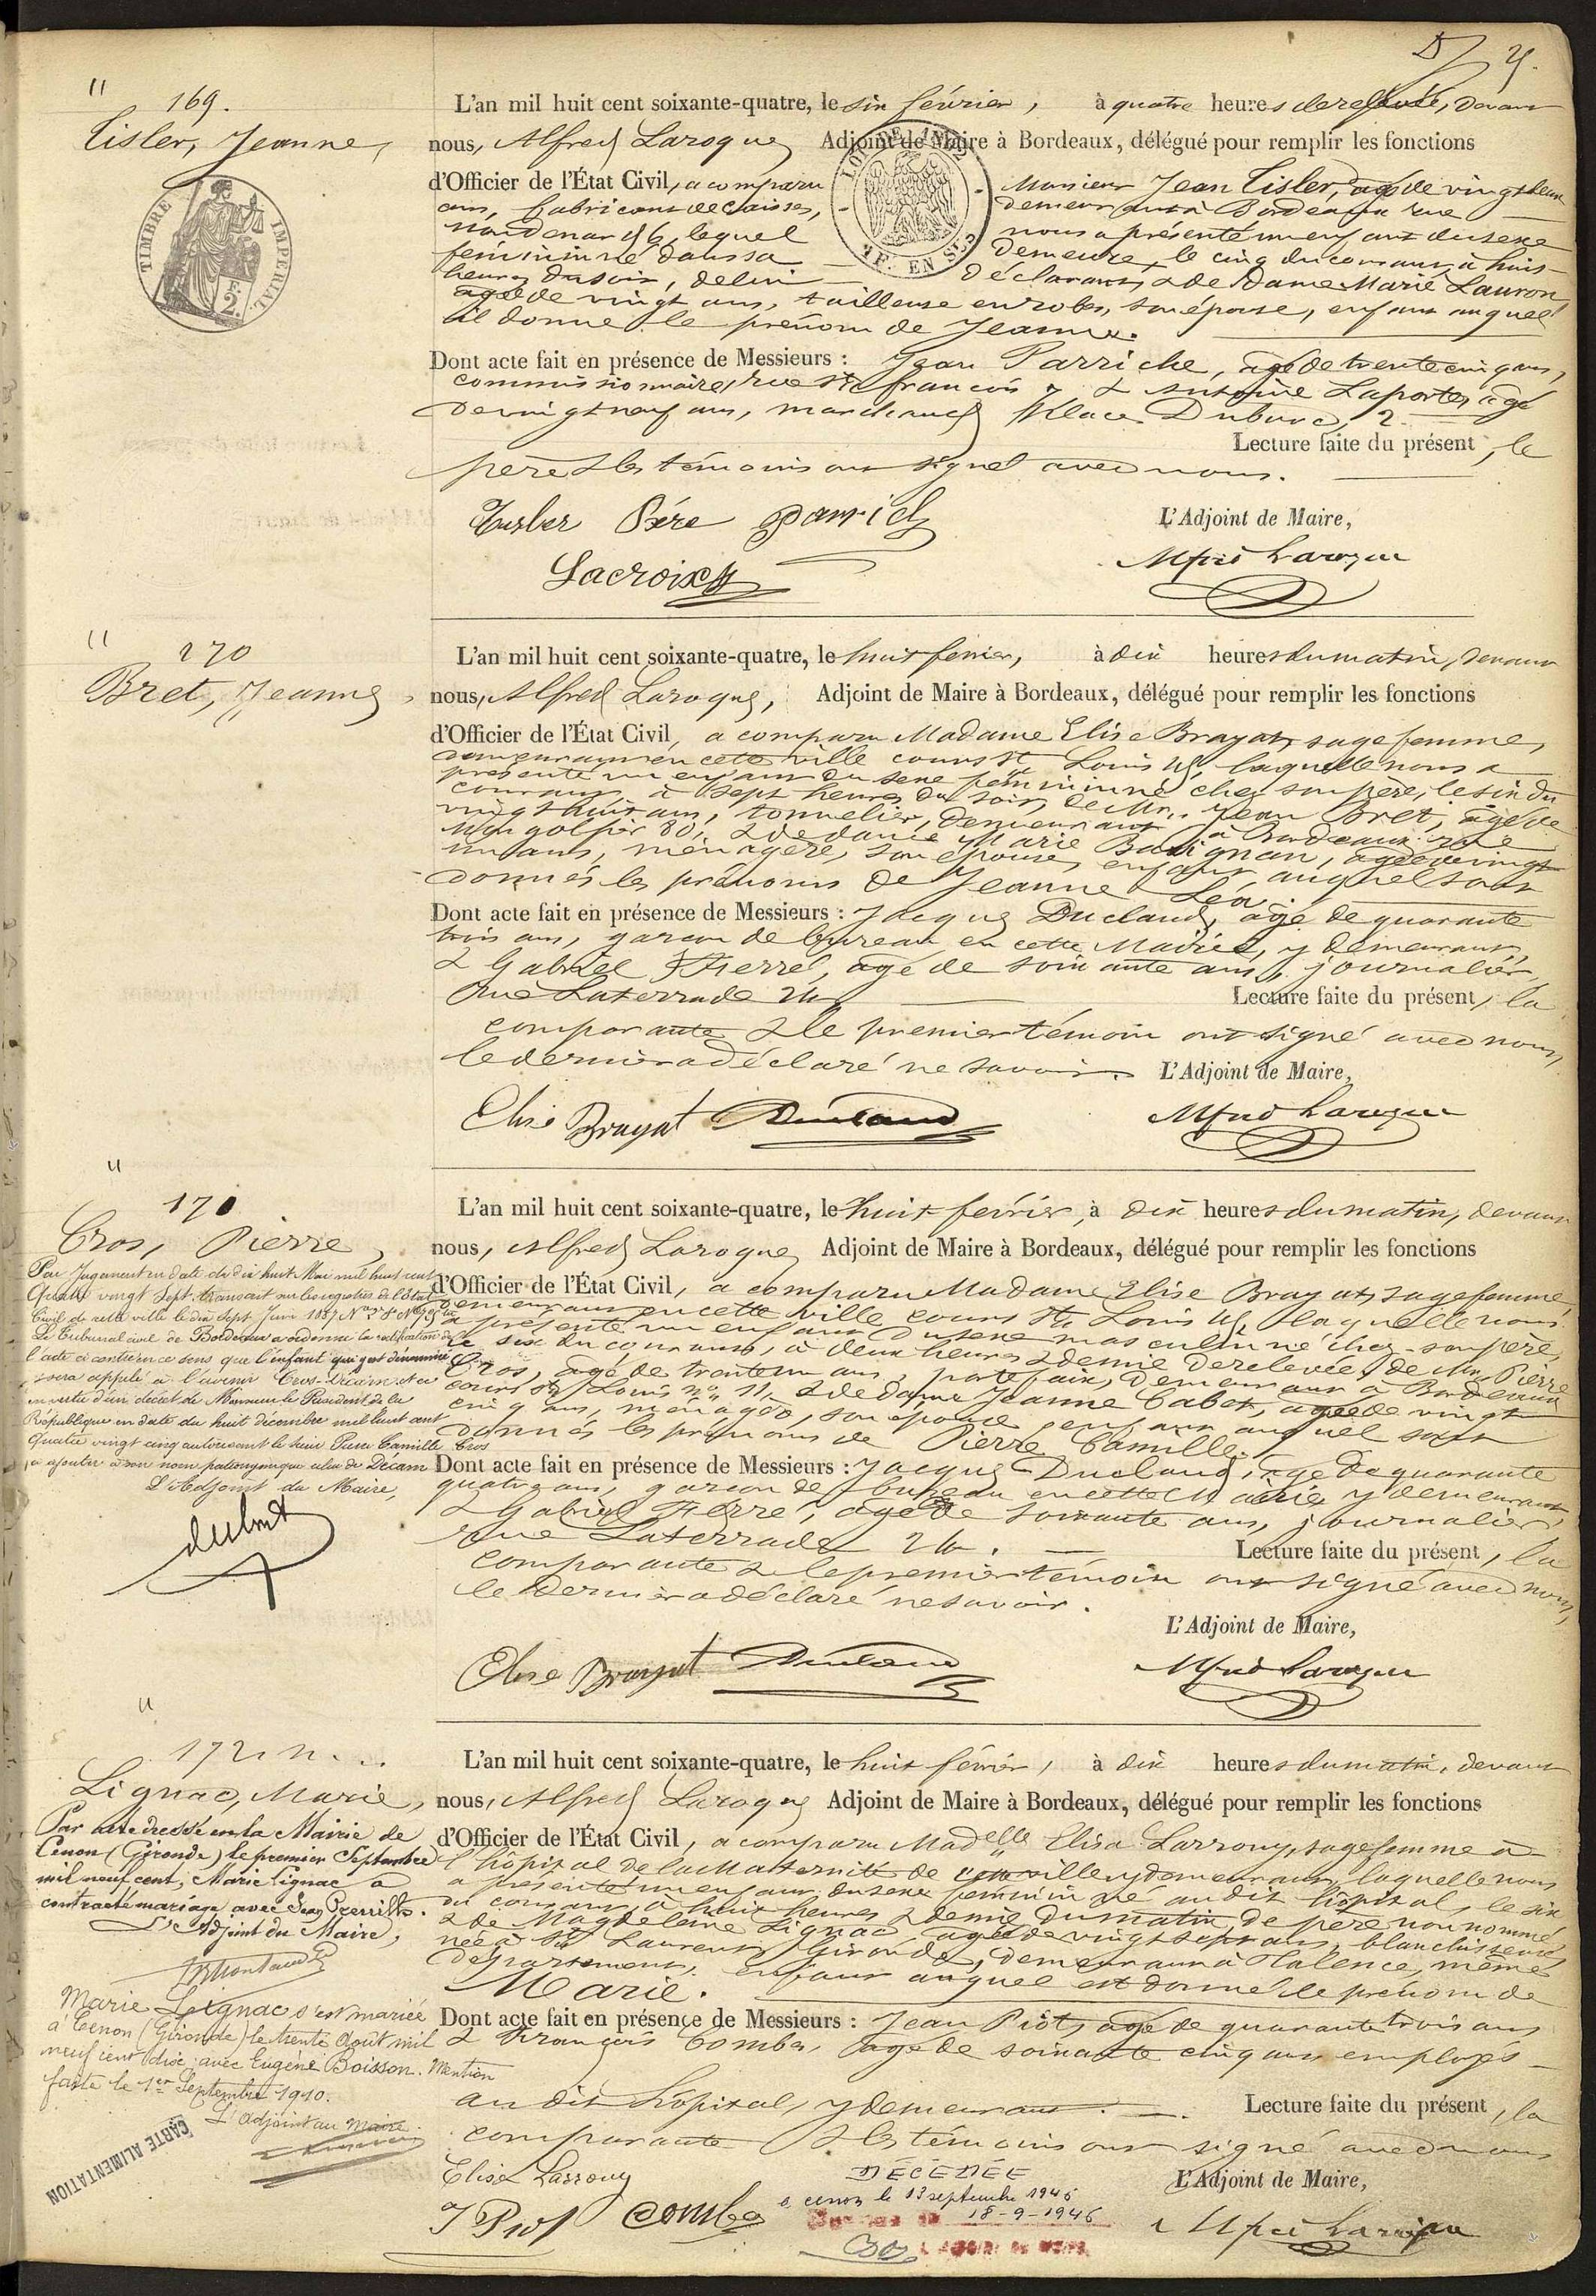 169.
Tisler, Jeanne,
TIMBRE IMPERIAL
2
L'an mil huit cent soixante-quatre, le six février, à quatre heures de relevée, devant
nous, Alfred Laroque, Adjoint de Maire à Bordeaux, délégué pour remplir les fonctions
d'Officier de l'État Civil, a comparu Monsieur Jean Tisler, agé de vingt deux
ans, fabricant de caisses, demeurant à Bordeaux rue
Naudenard 6, lequel nous a présenté un enfant du sexe
féminin né dans sa demeure, le cinq du courant, à huit
heures du soir, de lui déclarant, & de Dame Marie Lauron,
agée de vingt ans, tailleuse en robes, son épouse, enfant auquel
il donne le prénom de Jeanne.
Dont acte fait en présence de Messieurs : Jean Parriche, agé de trente cinq ans,
commissionnaire, rue St François 7, & Antoine Laporte, agé
de vingt neuf ans, marchand, Place Duburg, 2.
Lecture faite du présent, le
père & les témoins ont signé avec nous.
L'Adjoint de Maire,
Père
Lacroix
Alfred Laroque
170
Bret, Jeanne,
L'an mil huit cent soixante-quatre, le huit février, à dix heures du matin, devant
nous, Alfred Laroque, Adjoint de Maire à Bordeaux, délégué pour remplir les fonctions
d'Officier de l'État Civil, a comparu Madame Elise Bragat, sage femme,
demeurant en cette ville cours St Louis 45, laquelle nous a
présenté un enfant du sexe féminin né chez son père, le six du
courant, à sept heures du soir, de Mr. Jean Bret, agé de
vingt huit ans, tonnelier, demeurant à Bordeaux rue
Mongolfier 80, & de dame Marie Bassignan, agée de vingt
un ans, ménagère, son épouse, enfant auquel sont
donnés les prénoms de Jeanne Léa.
Dont acte fait en présence de Messieurs : Jacques Duclaud, agé de quarante
trois ans, garçon de bureau en cette Mairie, y demeurant,
& Gabriel Ferré, agé de soixante ans, journalier,
rue Laterrade 24
Lecture faite du présent, la
comparante & le premier témoin ont signé avec nous,
le dernier a déclaré ne savoir. L'Adjoint de Maire,
Elise Bragat Duclaud Alfred Laroque
171
Cros, Pierre,
Par Jugement en date du dix huit Mai mil huit cent
Quatre vingt Sept transcrit sur les registres de l'État
Civil de cette ville le dix Sept Juin 1887
Le Tribunal civil de Bordeaux a ordonné la rectification de
l'acte ci contre en ce sens que l'enfant qui y est dénommé
sera appelé à l'avenir Cros-Décam et ce
en vertu d'un décret de Monsieur le Président de la
République en date du huit décembre mil huit cent
Quatre vingt cinq autorisant le Sieur Pierre Camille Cros
à ajouter à son nom patronymique celui de Décam
L'Adjoint du Maire,
L'an mil huit cent soixante-quatre, le huit février, à dix heures du matin, devant
nous, Alfred Laroque, Adjoint de Maire à Bordeaux, délégué pour remplir les fonctions
d'Officier de l'État Civil, a comparu Madame Elise Bragat, sage femme,
demeurant en cette ville cours St Louis 45, laquelle nous
a présenté un enfant du sexe masculin né chez son père,
le six du courant, à deux heures & demie de relevée, de Mr. Pierre
Cros, agé de trente un ans, portefaix, demeurant à Bordeaux
cours St Louis no. 11, & de dame Jeanne Cabot, agée de vingt
cinq ans, ménagère, son épouse, enfant auquel sont
donnés les prénoms de Pierre Camille.
Dont acte fait en présence de Messieurs : Jacques Duclaud, agé de quarante
quatre ans, garçon de bureau en cette Mairie y demeurant
& Gabriel Ferré, agé de soixante ans, journalier,
rue Laterrade 24.
Lecture faite du présent, la
comparante & le premier témoin ont signé avec nous,
le dernier a déclaré ne savoir.
L'Adjoint de Maire,
Elise Bragat Duclaud Alfred Laroque
172. n.
Lignac, Marie,
Par acte dressé en la Mairie de
Cenon (Gironde) le premier Septembre
mil neuf cent, Marie Lignac a
contracté mariage avec Jean
L'Adjoint du Maire,
Marie Lignac s'est mariée
à Cenon (Gironde) le trente Août mil
neuf cent dix, avec Eugène Boisson. Mention
faite le 1er Septembre 1910.
L'adjoint au Maire
CARTE ALIMENTATION
L'an mil huit cent soixante-quatre, le huit février, à dix heures du matin, devant
nous, Alfred Laroque Adjoint de Maire à Bordeaux, délégué pour remplir les fonctions
d'Officier de l'État Civil, a comparu Madelle Elisa Larrouy, sage femme à
l'hôpital de la Maternité de cette ville y demeurant, laquelle nous
a présenté un enfant du sexe féminin né au dit hôpital, le six
du courant, à huit heures & demie du matin, de père non nommé
& de Magdeleine Lignac, agée de vingt sept ans, blanchisseuse
née à St Laurent, Gironde, demeurant à Talence, même
département, enfant auquel est donné le prénom de
Marie.
Dont acte fait en présence de Messieurs : Jean Piot, agé de quarante trois ans
& François Combe, agé de soixante cinq ans employés
au dit hôpital, y demeurant.
Lecture faite du présent, la
comparante & les témoins ont signé avec nous
L'Adjoint de Maire,
Elisa Larrouy
J Piot Combe
DÉCÉDÉE
à Cenon le 13 septembre 1946
18-9-1946
Alfred Laroque